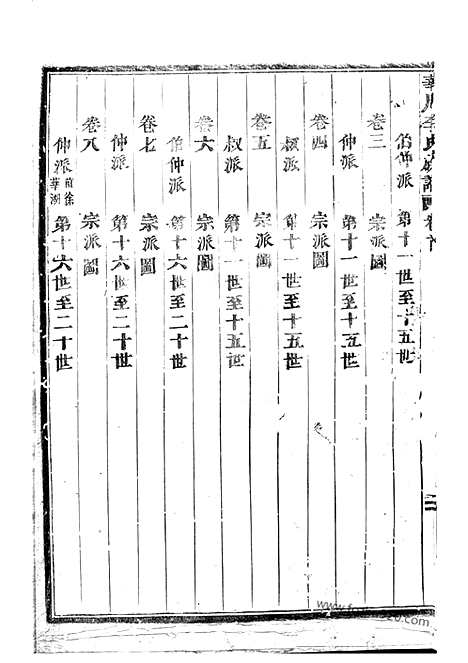 伯仲派 第十一世至十五世
卷三 宗派圖
仲派 第十一世至十五世
卷四 宗派圖
叔派 第十一世至十五世
卷五 宗派圖
叔派 第十一世至十五世
卷六 宗派圖
伯仲派 第十六世至二十世
卷七 宗派圖
仲派 第十六世至二十世
卷八 宗派圖
仲派 第十六世至二十世
二